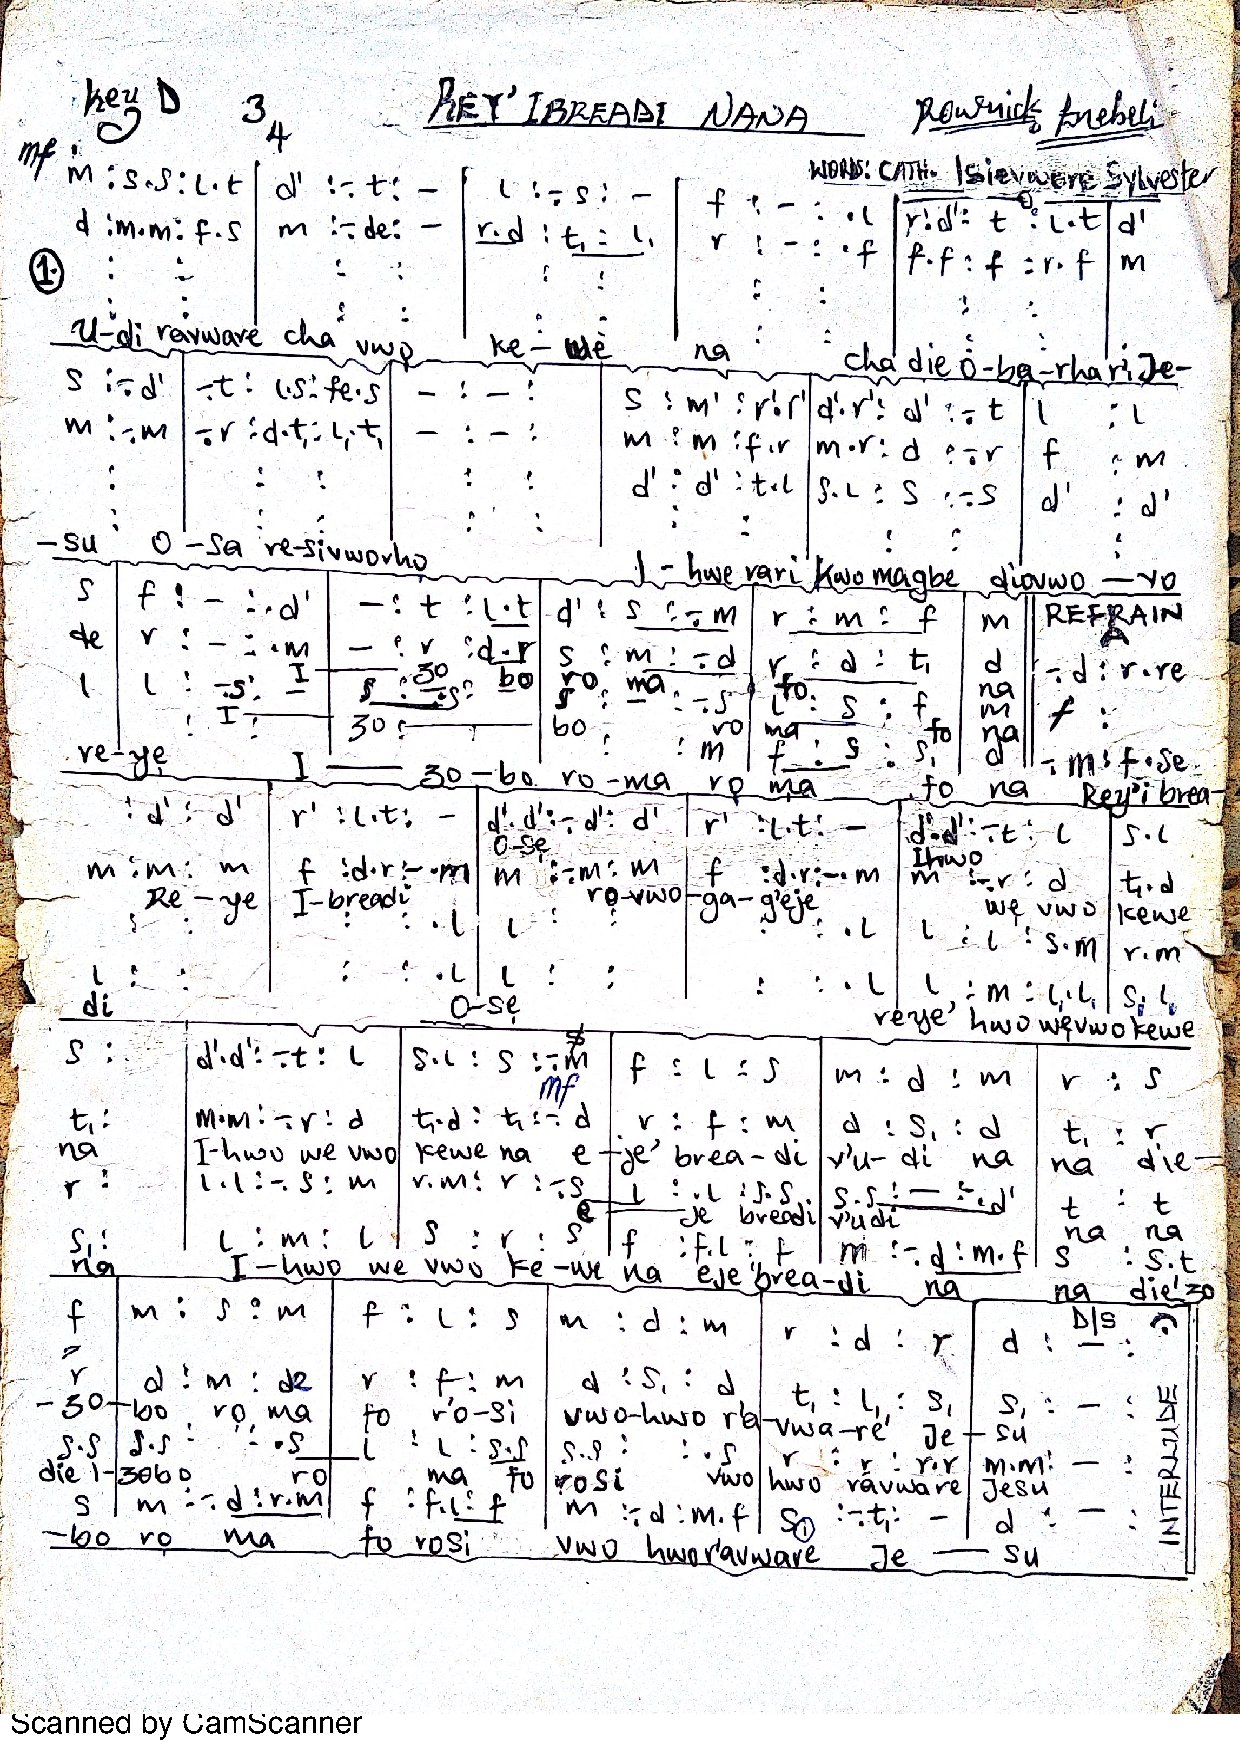 key D 3/4 REY' IBREADI NANA
WORDS: CATH. Isievwere Sylvester
mf
m : s.s : l.t | d' :-. t : - | l :-. s : - | f : - : .l | r'.d' : t : l.t | d'
d : m.m : f.s | m :-. de : - | r.d : t₁ : l₁ | r : - : .f | f.f : f : r.f | m
1.
U-di ravware cha vwo ke - we na cha die O-ba-rhari Je-
s :-. d' | -. t : l.s : fe.s | - : - : | s : m' : r'.r' | d'.r' : d' :-. t | l : l
m :-. m | -. r : d.t₁ : l₁.t₁ | - : - : | m : m : f.r | m.r : d :-. r | f : m
d' : d' : t.l | s.l : s :-. s | d' : d'
-su O-sa re-sivworho I-hwe rari kwo magbe diovwo - ro
s | f : - : .d' | - : t : l.t | d' : s :-. m | r : m : f | m || REFRAIN
de | r : - : .m | - : r : d.r | s : m :-. d | r : d : t₁ | d || -. d : r.re
I 30 bo ro ma fo na
l | l :-. s : - | s :-. s : | s : - :-. s | l : s : f | m || f :
I 30 bo ro ma fo na
: : m | f : s : s₁ | d || -. m : f.se
re-ye I 30-bo ro-ma ro ma fo na Rey'i brea-
: d' : d' | r' : l.t : - | d'.d' :-. d' : d' | r' : l.t : - | d'.d' :-. t : l | s.l
O-se Ihwo
m : m : m | f : d.r :-. m | m :-. m : m | f : d.r :-. m | m :-. r : d | t₁.d
Re-ye I-breadi ro-vwo-ga-g'eje we vwo kewe
: : | : : .l | l : : | : : .l | l : l : s.m | r.m
l : : | : : .l | l : : | : : .l | l : m : l₁.l₁ | s₁.l₁
di O-se reye' hwo wevwo kewe
s : | d'.d' :-. t : l | s.l : s :-. m | f : l : s | m : d : m | r : s
mf
t₁ : | m.m :-. r : d | t₁.d : t₁ :-. d | r : f : m | d : s₁ : d | t₁ : r
na I-hwo we vwo kewe na e-je' brea-di v'u-di na na die-
r : | l.l :-. s : m | r.m : r :-. s | l : .l : s.s | s.s : - : .d' | t : t
e je breadi v'udi na na
s₁ : | l : m : l | s : r : s | f : f.l : f | m :-. d : m.f | s : s.t
na I-hwo we vwo ke-we na eje'brea-di na na die'30
f | m : s : m | f : l : s | m : d : m | r : d : r | d : - : D/S
r | d : m : de | r : f : m | d : s₁ : d | t₁ : l₁ : s₁ | s₁ : - :
-30-bo ro ma fo r'o-si vwo-hwo r'a-vwa-re' Je-su
s.s | s.s : : .s | l : l : s.s | s.s : : .s | r : r : r.r | m.m : - :
die I-30bo ro ma fo rosi vwo hwo ravware Jesu
s | m :-. d : r.m | f : f.l : f | m :-. d : m.f | s₁ :-. t₁ : - | d : - :
-bo ro ma fo rosi vwo hwor'avware Je - su
INTERLUDE
Scanned by CamScanner